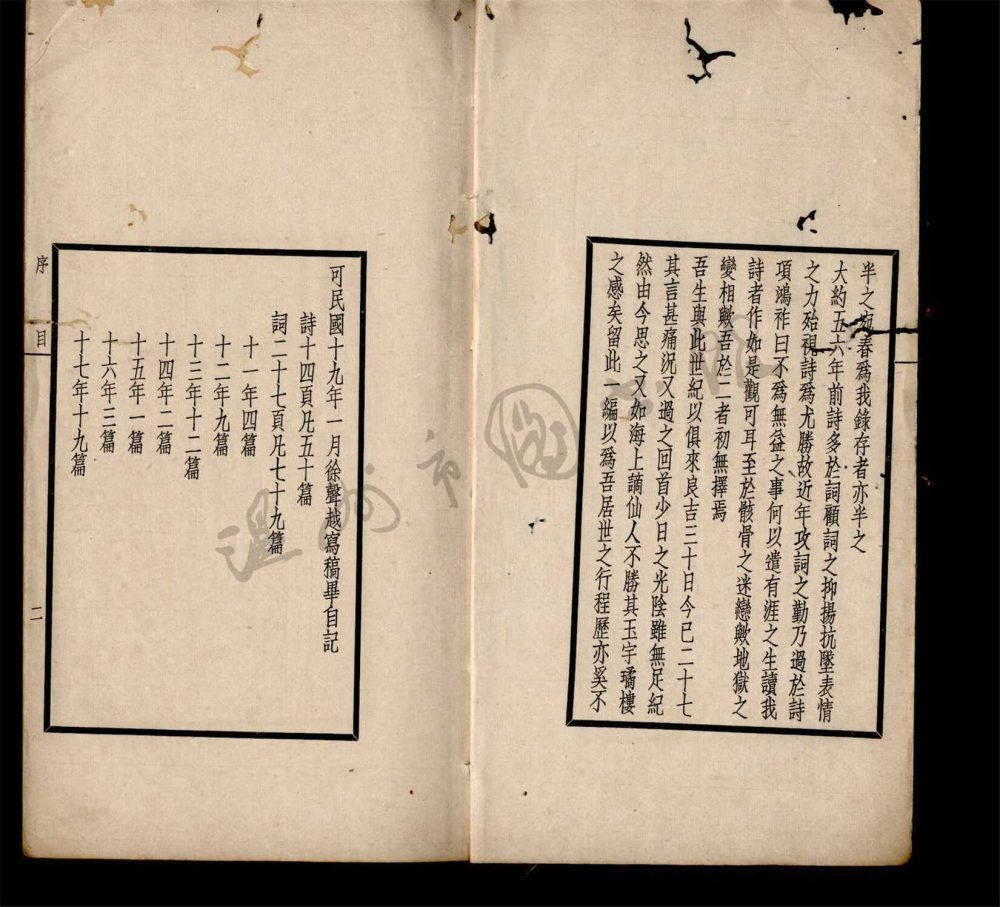 半之宛春爲我錄存者亦半之
大約五六年前詩多於詞顧詞之抑揚抗墜表情
之力殆視詩爲尤勝故近年攻詞之勤乃過於詩
項鴻祚曰不爲無益之事何以遣有涯之生讀我
詩者作如是觀可耳至於骸骨之迷戀歟地獄之
變相歟吾於二者初無擇焉
吾生與此世紀以俱來良吉三十日今已二十七
其言甚痛況又過之回首少日之光陰雖無足紀
然由今思之又如海上謫仙人不勝其玉宇璚樓
之感矣留此一編以爲吾居世之行程歷亦奚不
可民國十九年一月徐聲越寫稿畢自記
詩十四頁凡五十篇
詞二十七頁凡七十九篇
十一年四篇
十二年九篇
十三年十二篇
十四年二篇
十五年一篇
十六年三篇
十七年十九篇
序目
二
溫州市圖書館